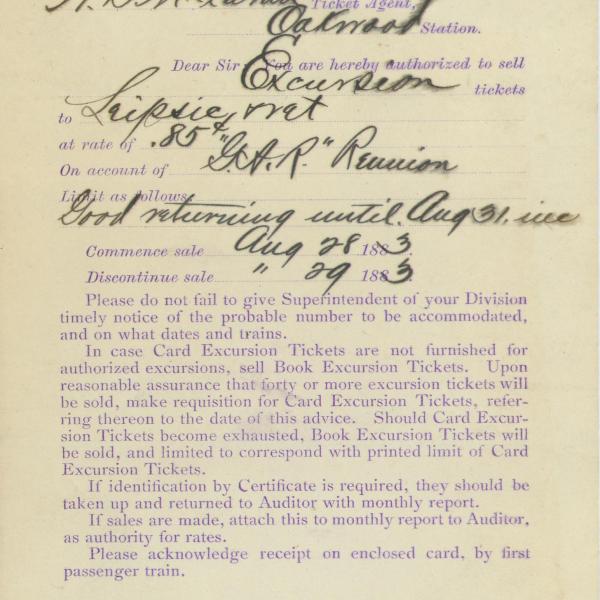 Ticket Agent,
Oakwood Station.
Dear Sir: You are hereby authorized to sell
Excursion tickets
to Leipsic, & ret
at rate of .85¢
On account of "G.A.R." Reunion
Limit as follows:
Good returning until Aug 31. inc
Commence sale Aug 28 1883.
Discontinue sale " 29 1883.
Please do not fail to give Superintendent of your Division
timely notice of the probable number to be accommodated,
and on what dates and trains.
In case Card Excursion Tickets are not furnished for
authorized excursions, sell Book Excursion Tickets. Upon
reasonable assurance that forty or more excursion tickets will
be sold, make requisition for Card Excursion Tickets, refer-
ring thereon to the date of this advice. Should Card Excur-
sion Tickets become exhausted, Book Excursion Tickets will
be sold, and limited to correspond with printed limit of Card
Excursion Tickets.
If identification by Certificate is required, they should be
taken up and returned to Auditor with monthly report.
If sales are made, attach this to monthly report to Auditor,
as authority for rates.
Please acknowledge receipt on enclosed card, by first
passenger train.